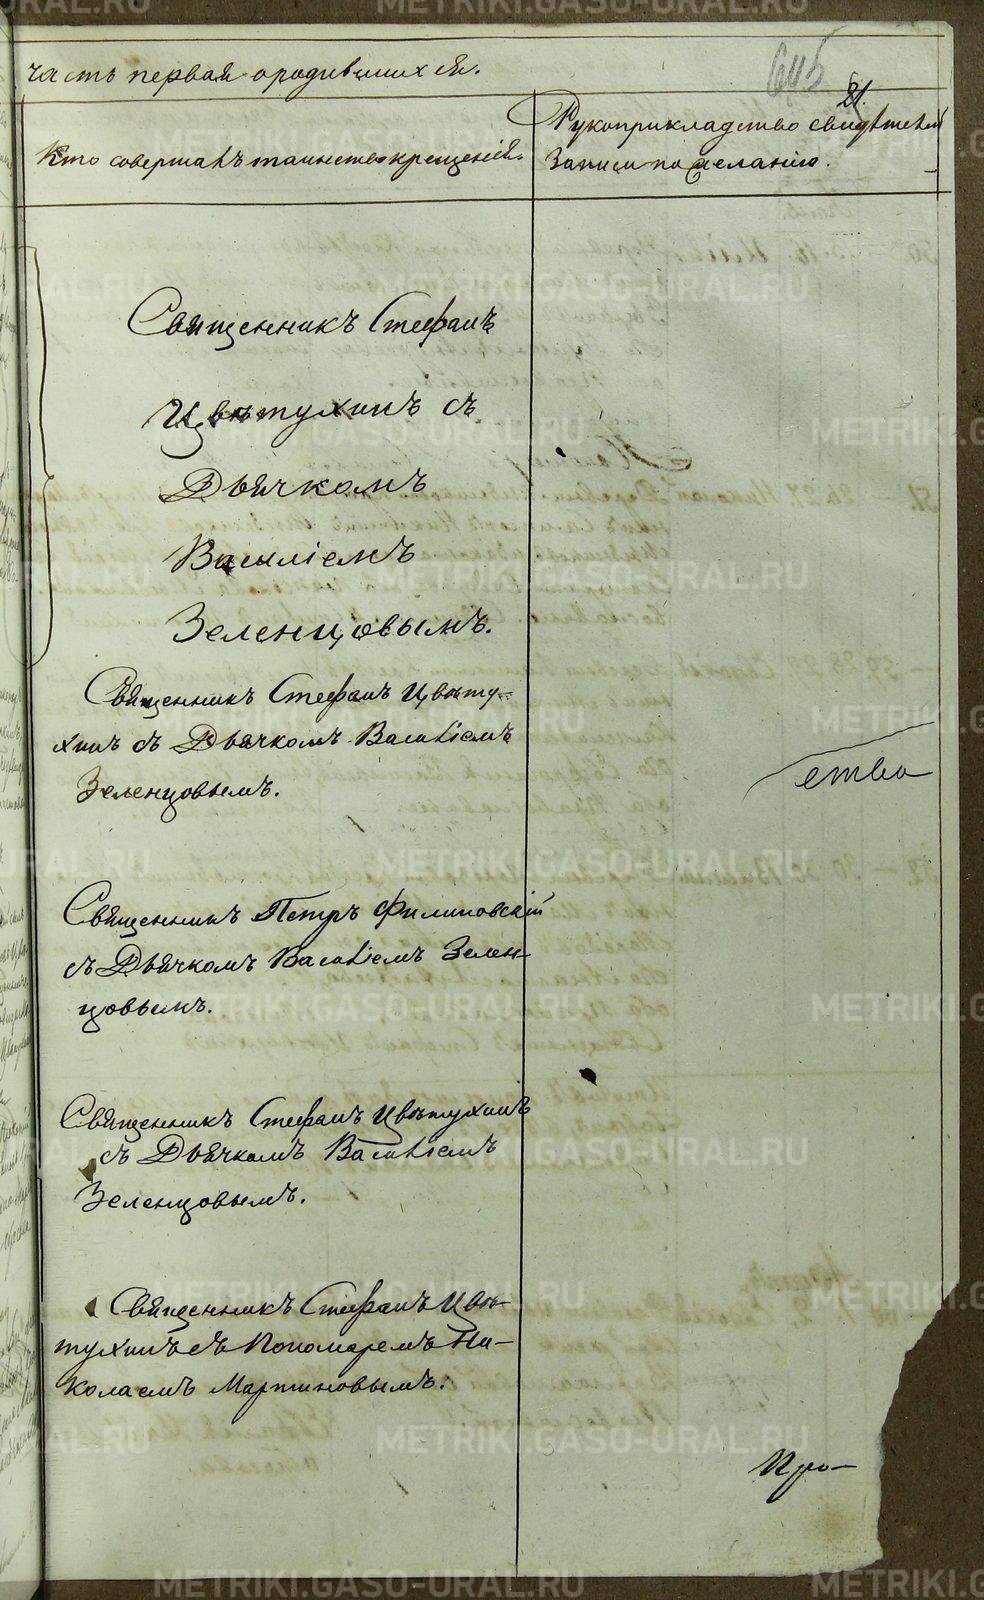 часть первая о родившихся.
645
21.
Кто совершалъ таинство крещенія.
Рукоприкладство свидѣтелей
записи по желанію.
Священникъ Стефанъ
Цвѣтухинъ съ
Дьячкомъ
Василіемъ
Зеленцовымъ.
Священникъ Стефанъ Цвѣту-
хинъ съ Дьячкомъ Василіемъ
Зеленцовымъ.
ство
Священникъ Петръ Филиповскій
съ Дьячкомъ Василіемъ Зелен-
цовымъ.
Священникъ Стефанъ Цвѣтухинъ
съ Дьячкомъ Василіемъ
Зеленцовымъ.
Священникъ Стефанъ Цвѣ-
тухинъ съ Пономаремъ Ни-
колаемъ Мартиновымъ.
Про-
METRIKI.GASO-URAL.RU